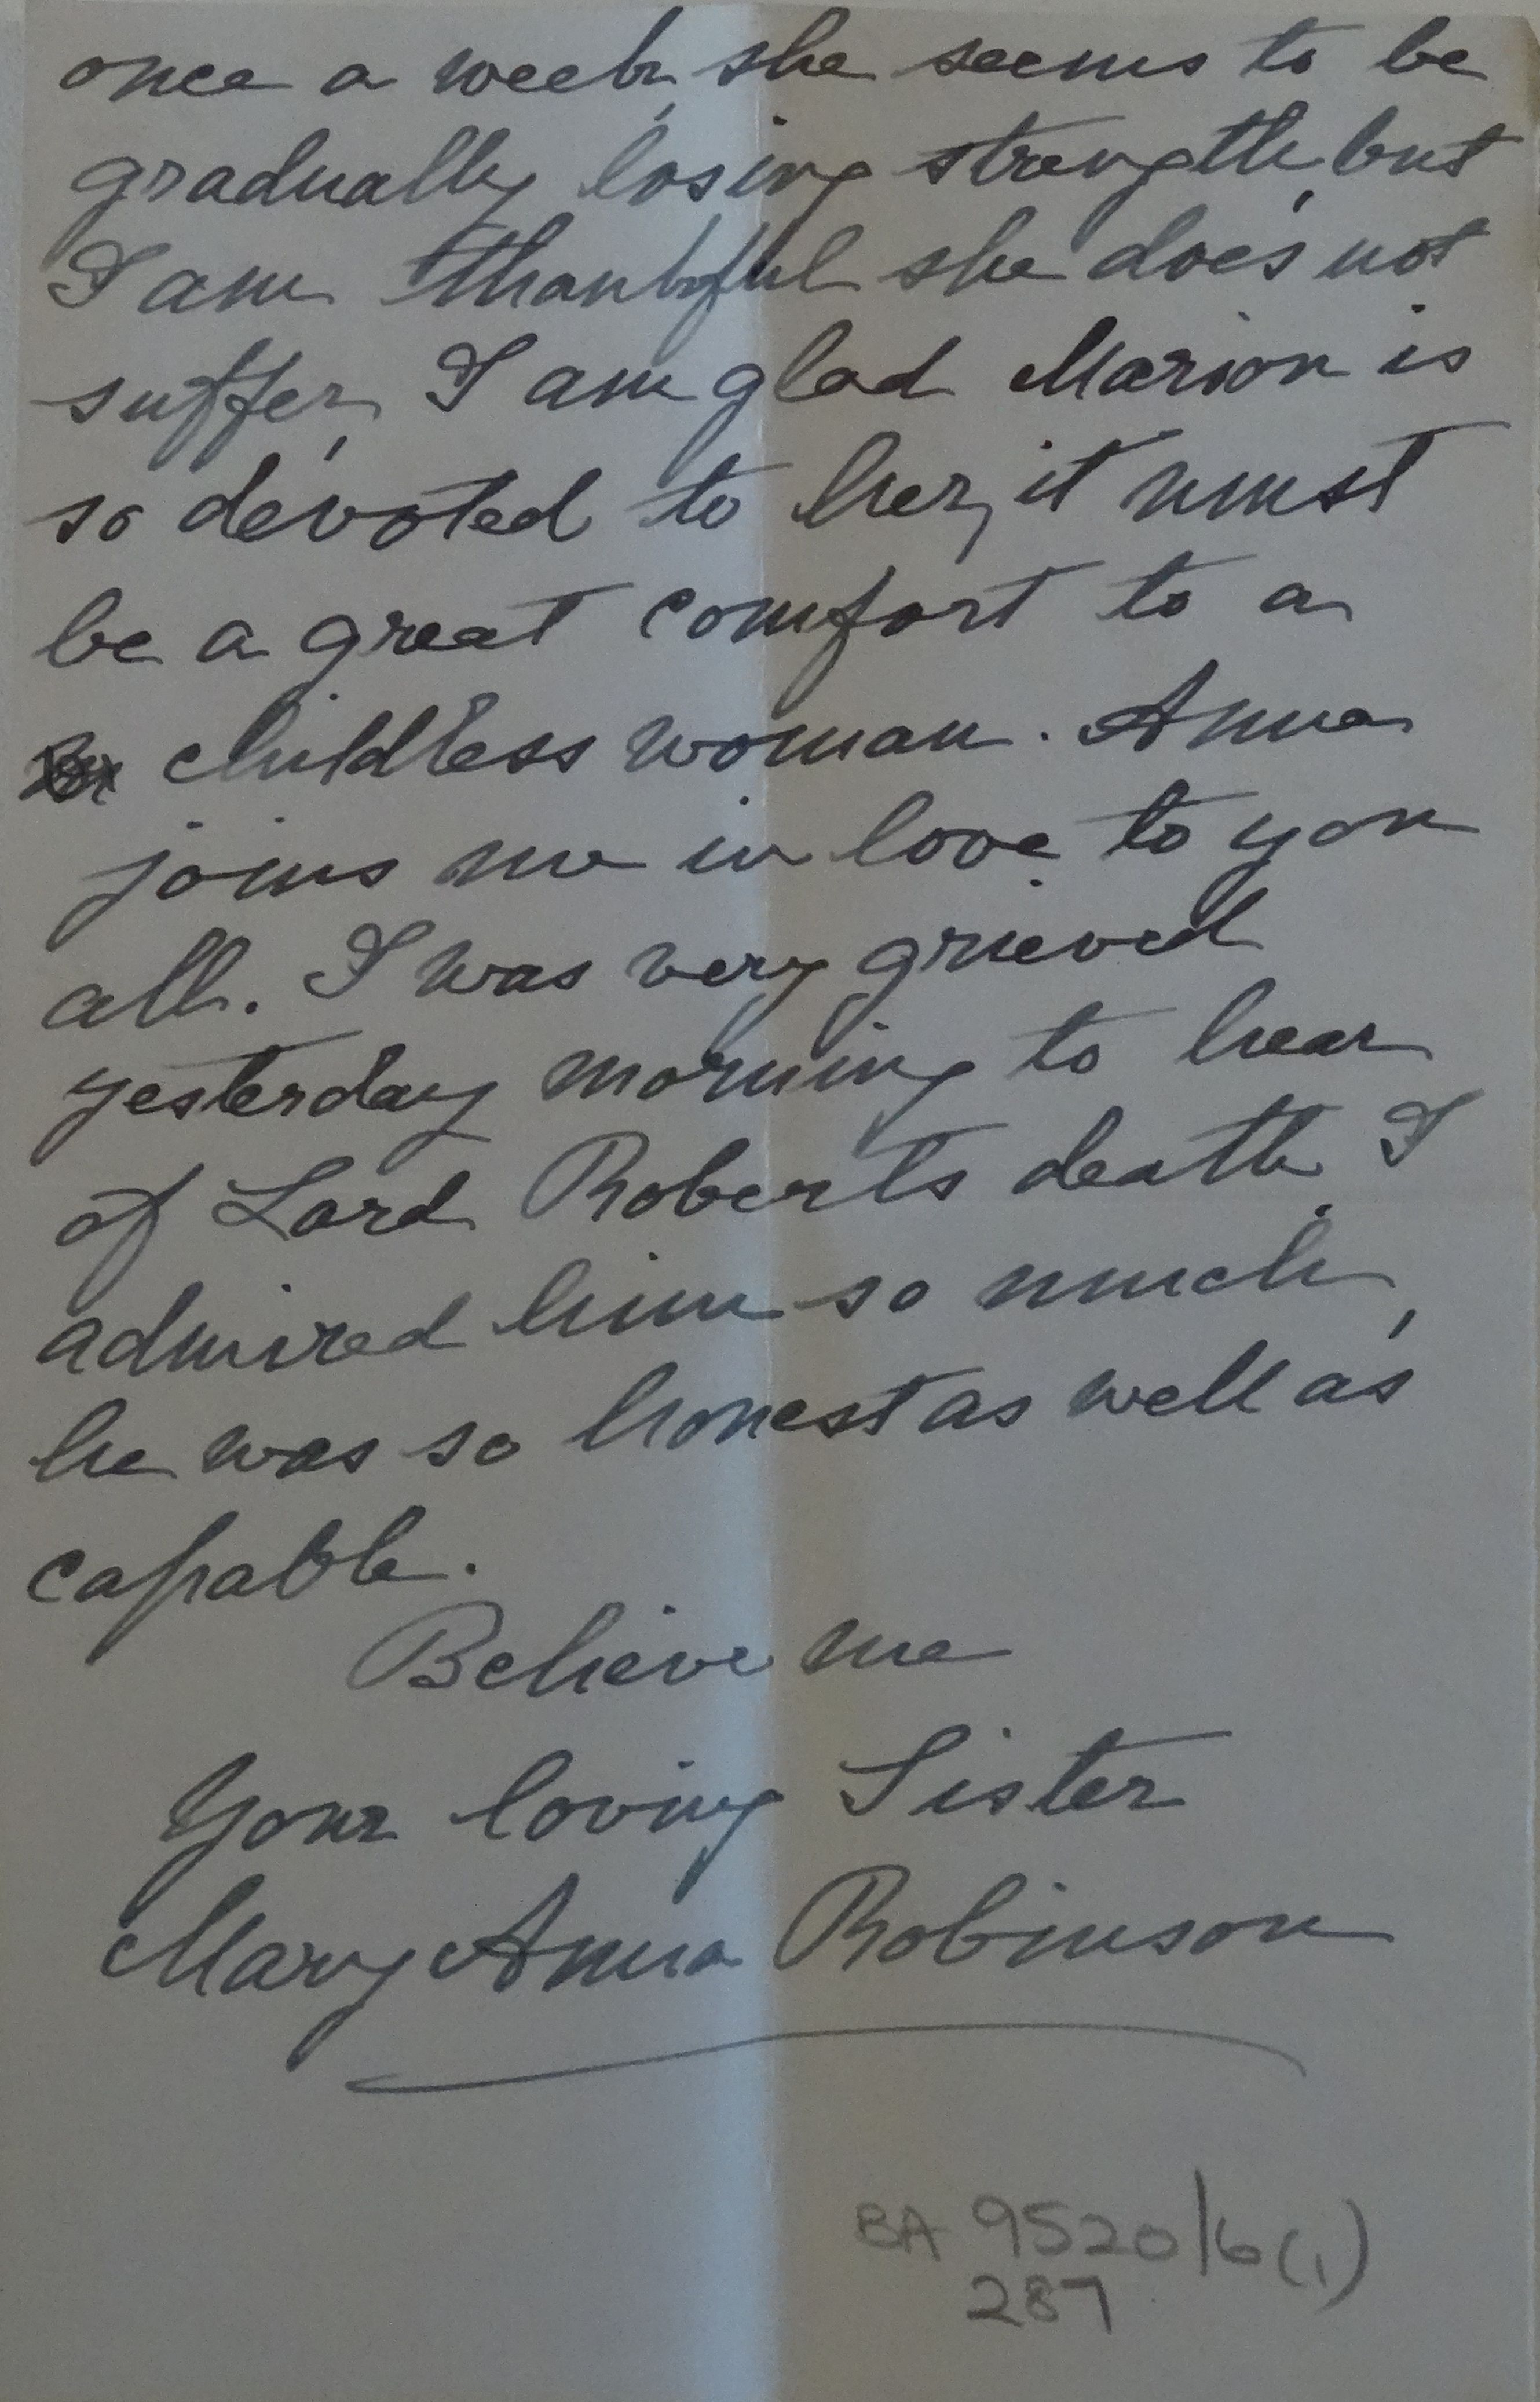 once a week, she seems to be
gradually losing strength, but
I am thankful she does not
suffer, I am glad Marion is
so devoted to her, it must
be a great comfort to a
childless woman. Anna
joins me in love to you
all. I was very grieved
yesterday morning to hear
of Lord Roberts death. I
admired him so much,
he was so honest as well as
capable.
Believe me
Your loving Sister
Mary Anna Robinson
BA 9520/6(1)
287